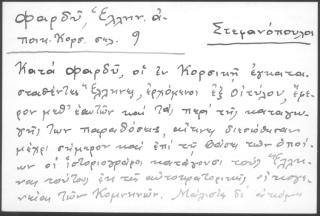 Φαρδύ, Ἑλλην. ἀ-
ποικ. Κορσ. σελ. 9
Στεφανόπουλοι
Κατά Φαρδύ, οἱ ἐν Κορσικῇ ἐγκατα-
σταθέντες Ἕλληνες, ἐρχόμενοι ἐξ Οἰτύλου, ἔφε-
ρον μεθ' ἑαυτῶν καί τάς περί τῆς καταγω-
γῆς των παραδόσεις, αἵτινες διεσώθησαν
μέχρι σήμερον καί ἐπί τῇ βάσει τῶν ὁποί-
ων οἱ ἱστοριογράφοι κατάγουσι τούς Ἕλλη-
νας τούτους ἐκ τῆς αὐτοκρατορικῆς οἰκογε-
νείας τῶν Κομνηνῶν. Μάλιστα δέ